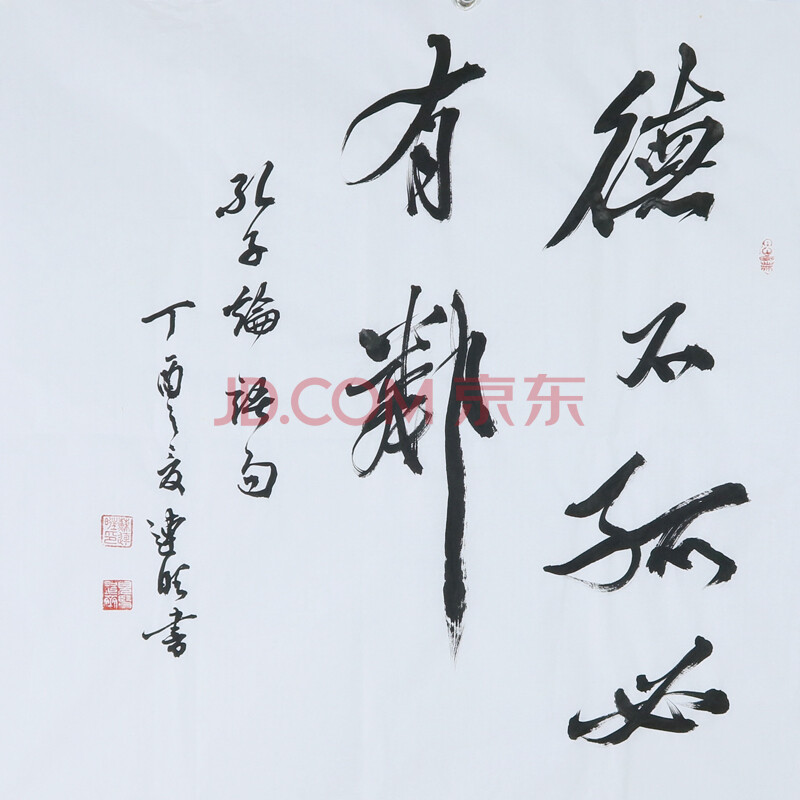 德不孤必
有鄰
孔子論語句
丁酉之夏建旺書
JD.COM 京东